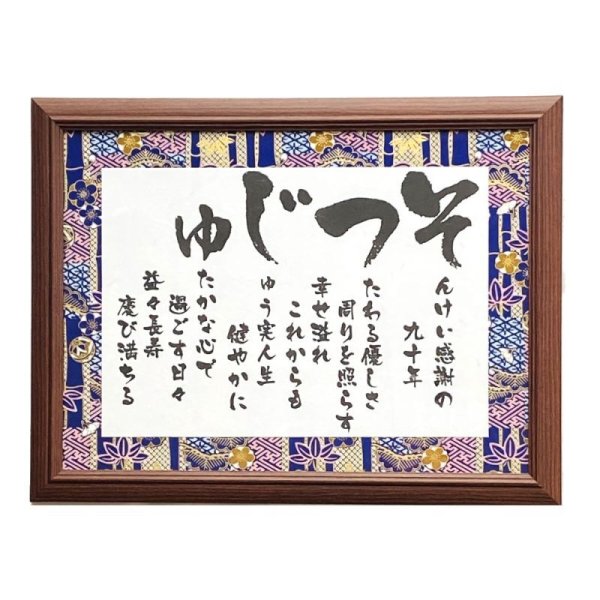 そつじゆ
んけい感謝の
九十年
たわる優しさ
周りを照らす
幸せ溢れ
これからも
ゆう実人生
健やかに
たかな心で
過ごす日々
益々長寿
慶び満ちる